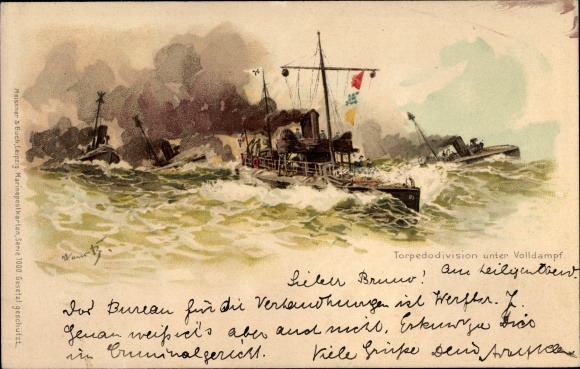 Meissner & Buch, Leipzig. Marinepostkarten, Serie 1000 Gesetzl. geschützt.
Torpedodivision unter Volldampf.
Lieber Bruno! Am heiligen
Das Bureau für die Verhandlungen ist Werftstr. 7.
Genau weiß ich's aber auch nicht, Erkundge Dich
im Criminalgericht. Viele Grüße Dein